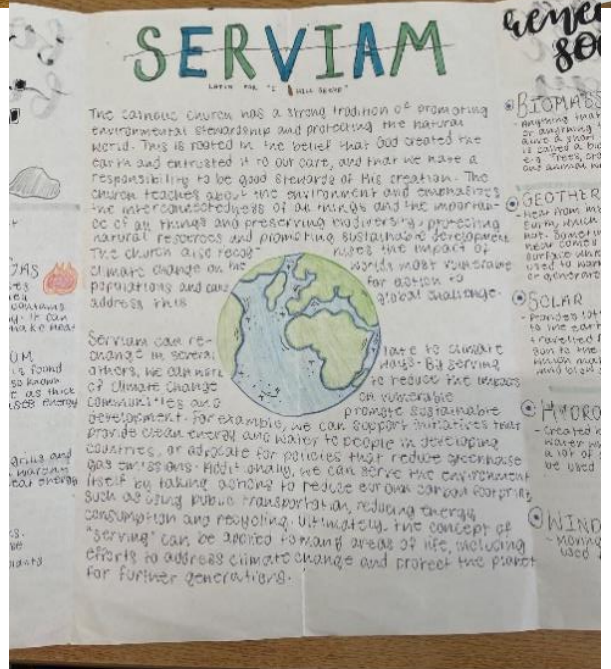 SERVIAM
LATIN FOR "I WILL SERVE"
The Catholic Church has a strong tradition of promoting
environmental stewardship and protecting the natural
world. This is rooted in the belief that God created the
earth and entrusted it to our care, and that we have a
responsibility to be good stewards of His creation. The
church teaches about the environment and emphasizes
the interconnectedness of all things and the importan-
ce of all things and preserving biodiversity, protecting
natural resources and promoting sustainable development
The church also recog nizes the impact of
climate change on the worlds most vulnerable
populations and for action to
address this global challenge.
Serviam can re- late to climate
change in several ways. By serving
others, we can to reduce the impacts
of climate change on vulnerable
communities and promote sustainable
development. For example, we can support initiatives that
provide clean energy and water to people in developing
countries, or advocate for policies that reduce greenhouse
gas emissions. Additionally, we can serve the environment
itself by taking actions to reduce our own carbon footprint
such as using public transportation, reducing energy
consumption and recycling. Ultimately, the concept of
"serving" can be applied to many areas of life, including
efforts to address climate change and protect the planet
for further generations.
BIOMASS
Anything that
or anything
e.g. Trees,
GEOTHER
Heat from
Earth which
SOLAR
Provides
to the earth
travelled
HYDRO
Created
a lot of
be used
WIND
Moving
used